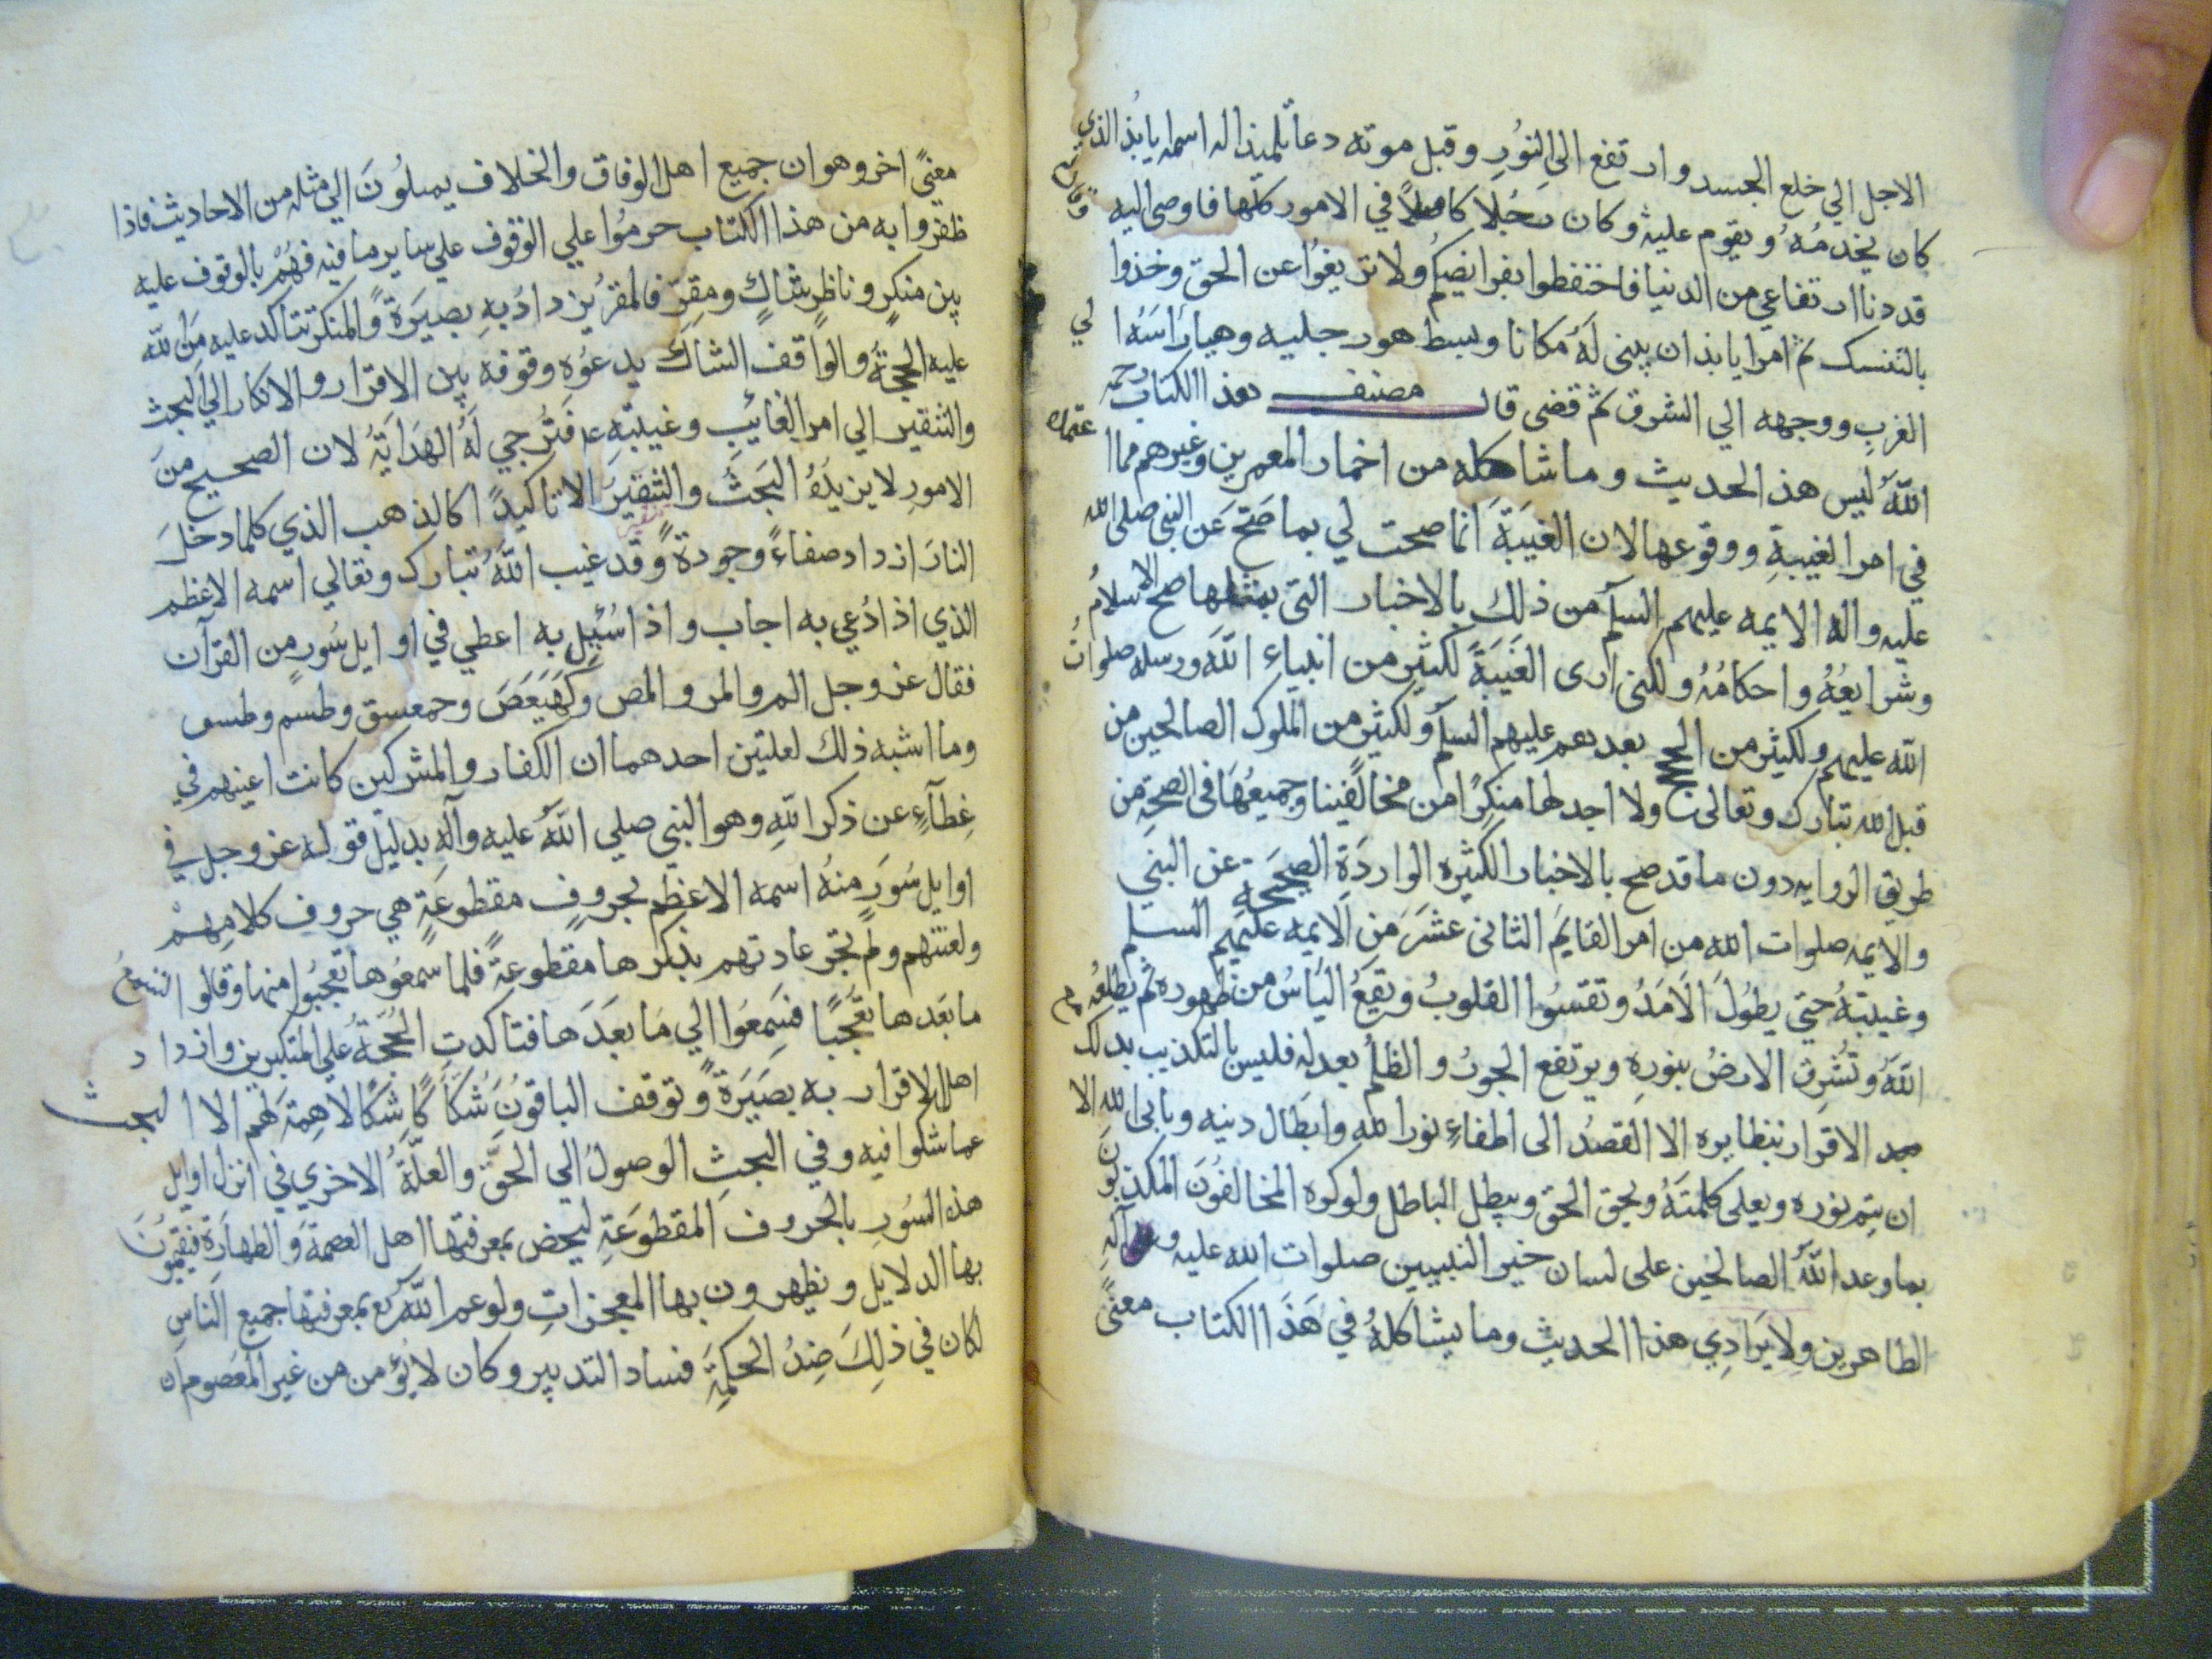 الاجل الي خلع الجسد وارتفع الي النُورِ وقبل موته دعا تلميذا له اسمه يابذ الذي
كان يخدمُهُ ويقوم عليه وكان رجُلا كاملاً في الامور كلها فاوصي اليه وقال
قد دنا ارتفاعي من الدنيا فاحتفظوا بفرايضكم ولا تزيغُوا عن الحق وخذوا
بالتنسك ثم امر يابذ ان يبني لَهُ مكانا وبسط هو رجليه وهيا رأسَهُ الي
الغرب ووجهه الي الشرق ثم قضي قال مصنف هذا الكتاب رحمه
اللَّه ليس هذ الحديث وما شاكله من اخبار المعمرين وغيرهم مما اعتمده
في امر الغيبةِ ووقوعها لان الغيَبَةَ انما صحت لي بما صَحَّ عَن النبي صلى الله
عليه واله الايمه عليهم السلم من ذلك بالاخبار التي بمثلها صح الاسلامُ
وشرايعُهُ واحكامُهُ ولكني اري الغَيَبَةَ لكثيرٍ من انبياء اللَّه ورسله صلوات
الله عليهم ولكثير من الحجج بعدهم عليهم السلم ولكثيرٍ من الملوك الصالحين من
قبل الله تبارك وتعالى ولا اجد لها منكِرًا من مخالفينا وجميعُهَا في الصحةِ من
طريق الروايه دون ما قد صح بالاخبار الكثيره الوارِدَةِ الصحيحة عن النبي
والايمه صلوات الله من امر القايَمِ الثاني عشَرَ مَن الايمه عليهم السلم
وغيبتهُ حتي يطُولَ الاَمَدُ وتقسُوا القلوبُ وتقعُ اليَاسُ من ظهوره ثم يطلعُه
اللَّه وتُشرِق الارضُ بنورِهِ ويرتفع الجورُ والظلُم بعدله فليس بالتكذيب بذلك
بعد الاقرار بنظايره الا القصدُ الى اطفاءِ نور الله وابطَال دينه ويابى الله الا
ان يتم نوره ويعلى كلمتَهُ ويحق الحق ويبطل الباطل ولو كره المخالفُون المكذبُونَ
بما وعد اللَّهُ الصالحين على لسان خير النبيين صلوات الله عليه وعلي آلهِ
الطاهرين ولايرَادِي هذا الحديث وما يشاكلهُ في هَذَا الكتاب معنىً
معنيً اخر وهو ان جميع اهل الوفاق والخلاف يميلُونَ الي مثله من الاحاديث فاذا
ظفروا به من هذا الكتاب حرمُوا علي الوقوف علي ساير ما فيه فهُمْ بالوقوف عليه
بين منكرٍ وناظرٍ شاكٍ ومقرّ فالمقر يزدادُ بهِ بصيَرَةً والمنكر تتاكد عليه مَن اللَّه
عليه الحجةُ والواقف الشاكّ يدعُوه وقوفه بين الاقرار والانكار الي البحث
والتنقير الي امر الغائبِ وغيبَتِه ع فتُرجي لَهُ الهدَايَةُ لان الصحيح مِنَ
الامورِ لا يزيدُهُ البَحثُ والتنقيَرُ الا تاكيدًا كالذهب الذي كلما دخلَ
النارَ ازداد صفاءً وجودةً وقد غيب اللَّهُ تبارك وتعالي اسمه الاعظم
الذي اذا دُعي به اجاب واذا سُئِل به اعطي في اوايل سُورٍ من القرآن
فقال عز وجل الم والمر والمص وكَهَيَعَصَ وحمعسق وطسم وطس
وما اشبه ذلك لعلتين احدهما ان الكفار والمشركين كانت اعينهم في
غِطآءٍ عن ذكر اللّهِ وهو النبي صلي اللَّه عليه وآله بدليل قوله عز وجل في
اوايل سُوَرٍ منهُ اسمه الاعظم بحروفٍ مقطوعَةٍ هي حروف كلامِهِمْ
ولغتهم ولم تجر عادتهم بذكرها مقطوعةً فلما سمعُوها تعجبُوا منها وقالوا نسمعُ
ما بَعدها تعَجُّبًا فسَمِعُوا الي مَا بعدَهَا فتاكدت الحُجةُ علي المنكرين وازداد
اهل الاقرار به بصَيَرَةً وتوقف الباقوُنَ شكا كاشكا لا هِمةَ لهم الا البحث
عما شكوا فيه وفي البَحثِ الوصولُ الي الحَقّ والعلَّةُ الاخري في انزل اوايل
هذه السُورِ بالحروف المقطوعَةِ ليخص بمعرفتها اهل العصمة والطهارة فيقيمُونَ
بها الدلايل ويظهرون بها المعجزاتِ ولو عم اللَّه تع بمعرفتها جميع الناس
لكان في ذلِكَ ضِدُ الحكمةِ فساد التدبير وكان لا يؤمن من غير المعَصوم ان